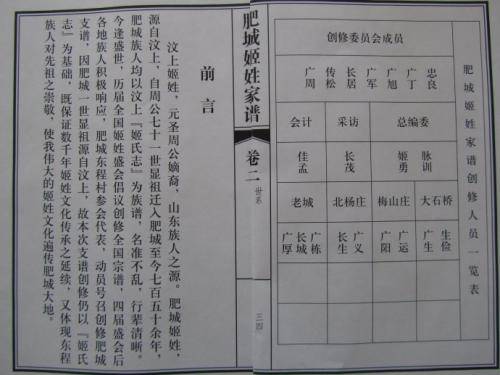 肥城姬姓家谱创修人员一览表
创修委员会成员
广周 传松 长居 广军 广旭 广丁 忠良
会计 采访 总编委
佳孟 长茂 姬勇 脉训
老城 北杨庄 梅山庄 大石桥
广厚 长城 广栋 长生 广义 广阳 广运 广生 生俭
肥城姬姓家谱
卷二
世系
三四
前言
汶上姬姓，元圣周公嫡裔，山东族人之源。肥城姬姓，
源自汶上，自周公七十一世显祖迁入肥城至今七百五十余年，
姬族人均以汶上『姬氏志』为族谱，名准不乱，行辈清晰。
今逢盛世，历届全国姬姓盛会倡议创修全国宗谱，四届盛会后
各地族人积极响应，肥城东程村参会代表，动员号召创修肥城
支谱，因肥城一世显祖源自汶上，故本次支谱创修仍以『姬氏
志』为基础，既保证数千年姬姓文化传承之延续，又体现东程
族人对先祖之崇敬，使我伟大的姬姓文化遍传肥城大地。